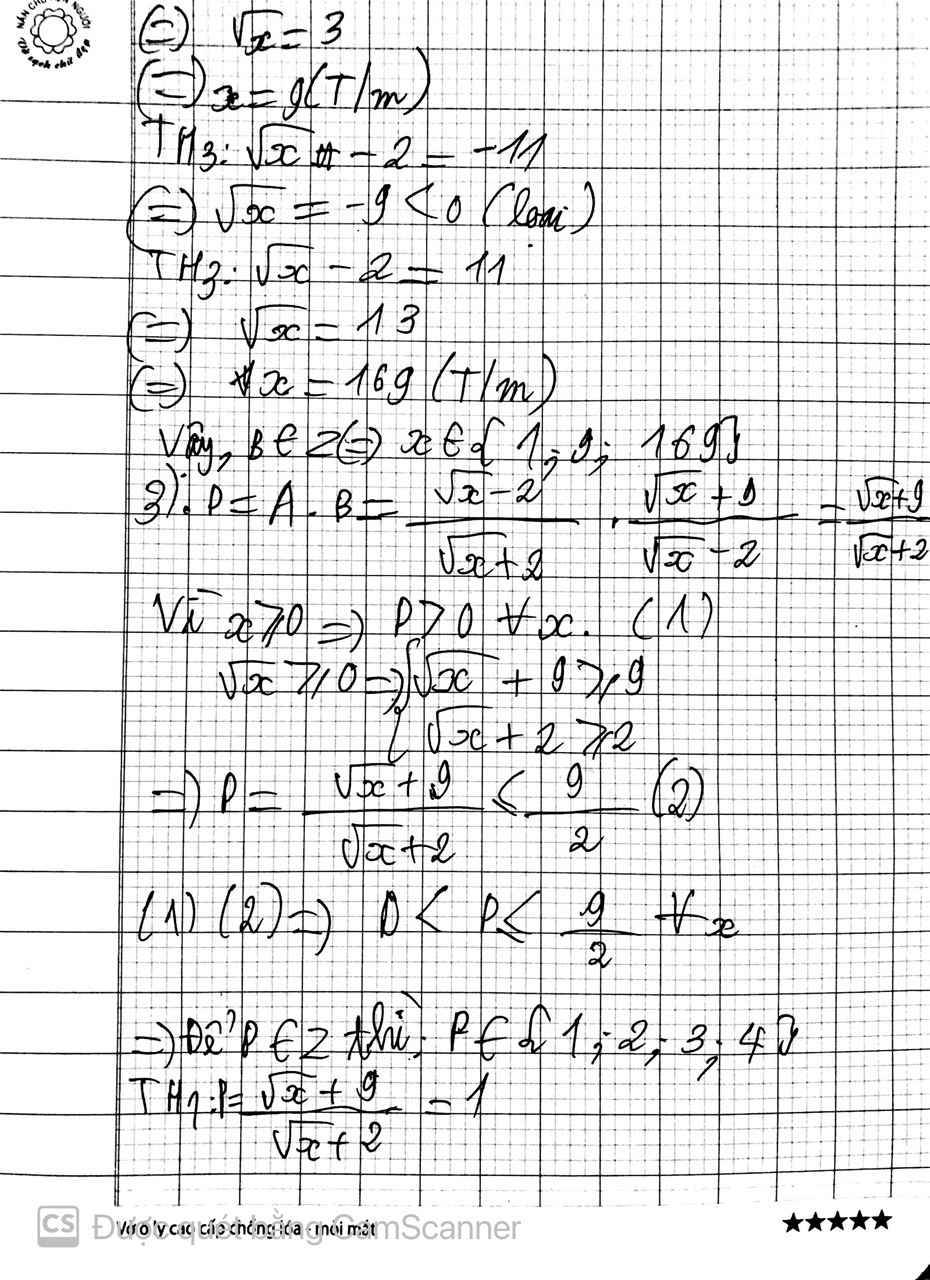 NÂN CHỮ NGƯỜI
Vở sạch chữ đẹp
(=) √x = 3
(=) x = 9 (T/m)
TH3: √x - 2 = -11
(=) √x = -9 < 0 (loại)
TH3: √x - 2 = 11
(=) √x = 13
(=) x = 169 (T/m)
Vậy, B ∈ Z (=) x ∈ { 1; 9; 169}
3): P = A . B = (√x - 2)/(√x + 2) . (√x + 9)/(√x - 2) = (√x + 9)/(√x + 2)
Vì x ≥ 0 =) P > 0 ∀x. (1)
√x ≥ 0 =) { √x + 9 ≥ 9
√x + 2 ≥ 2
=) P = (√x + 9)/(√x + 2) ≤ 9/2 (2)
(1) (2) =) 0 < P ≤ 9/2 ∀x
=) Để P ∈ Z thì: P ∈ { 1; 2; 3; 4}
TH1: P = (√x + 9)/(√x + 2) = 1
CS Được quét bằng CamScanner
Vở ô ly cao cấp chống lóa - mỏi mắt ★★★★★